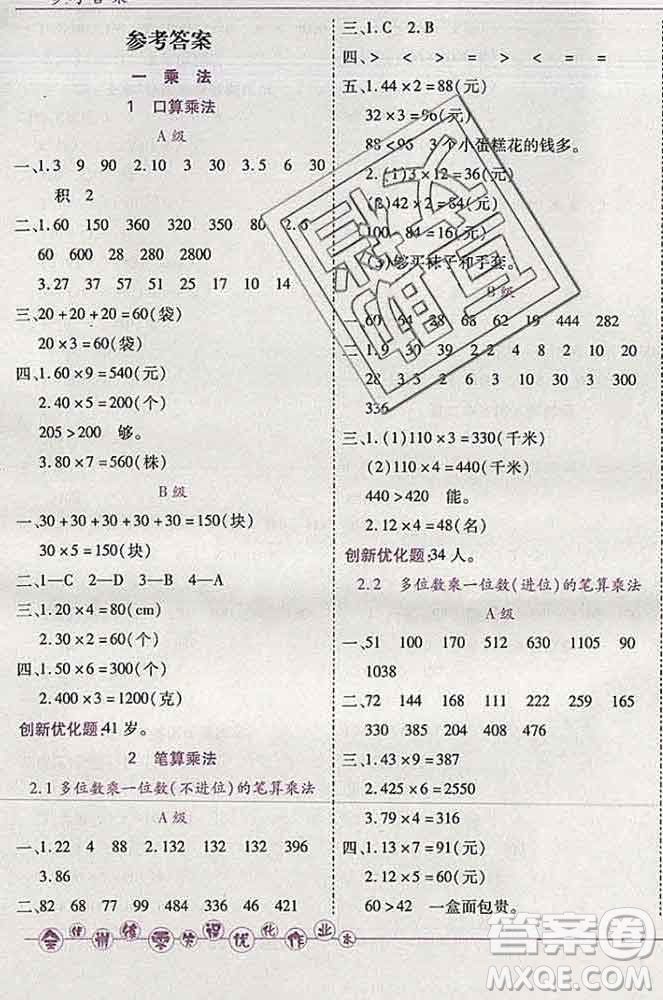 参考答案
一 乘 法
1 口算乘法
A 级
一、1.3 9 90 2.10 3 30 3.5 6 30
积 2
二、1.60 150 360 320 350 80 2.6
60 600 28 280 2800
3.27 37 57 51 25 17 10 14
三、20+20+20=60(袋)
20×3=60(袋)
四、1.60×9=540(元)
2.40×5=200(个)
205>200 够。
3.80×7=560(株)
B 级
一、30+30+30+30+30=150(块)
30×5=150(块)
二、1—C 2—D 3—B 4—A
三、1.20×4=80(cm)
2.30×2=60(个)
四、1.50×6=300(个)
2.400×3=1200(克)
创新优化题:41岁。
2 笔算乘法
2.1 多位数乘一位数(不进位)的笔算乘法
A 级
一、1.22 4 88 2.132 3 132 396
3.86
二、82 68 77 99 484 336 46 421
三、1.C 2.B
四、> < = > < = =
五、1.44×2=88(元)
32×3=96(元)
88<96 3个小蛋糕花的钱多。
2.(1)3×12=36(元)
(2)42×2=84(元)
100-84=16(元)
(3)够买袜子和手套。
B 级
一、60 64 28 68 62 19 444 282
二、1.9 30 39 2.2 4 8 2 10 20
28 3.3 2 6 30 10 3 300
336
三、1.(1)110×3=330(千米)
(2)110×4=440(千米)
440>420 能。
2.12×4=48(名)
创新优化题:34人。
2.2 多位数乘一位数(进位)的笔算乘法
A 级
一、51 100 170 512 630 1105 90
1038
二、72 144 168 129 387 148 165
330 385 204 408 612
三、1.43×9=387
2.425×6=2550
3.79×4=316
四、1.13×7=91(元)
2.12×5=60(元)
60>42 一盒面包贵。
优化作业本
答案圈
MXQE.COM